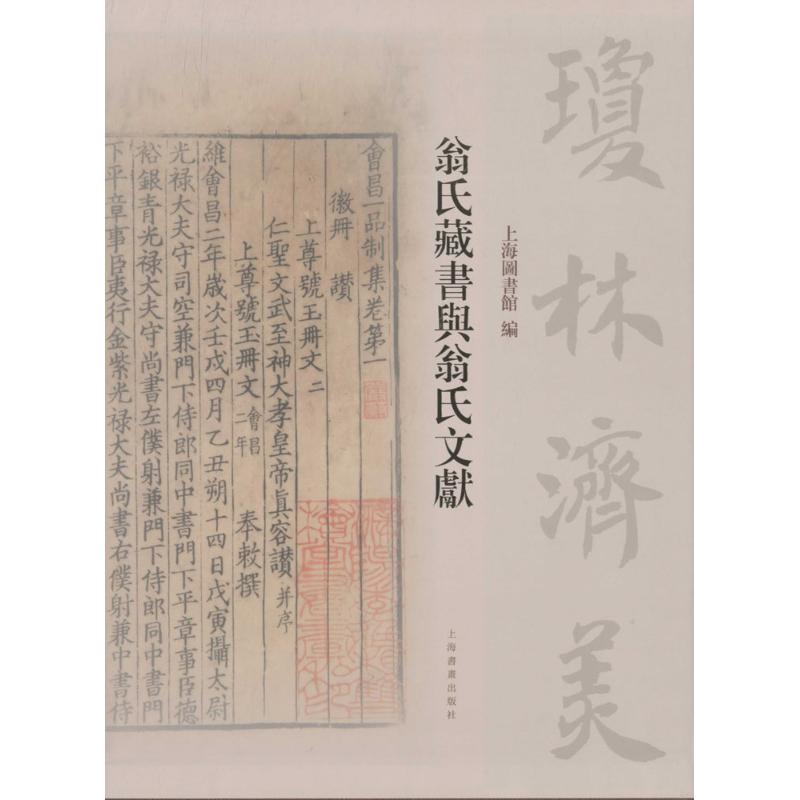 瓊林濟美
上海圖書館 編
翁氏藏書與翁氏文獻
上海書畫出版社
會昌一品制集卷第一
徽冊 讚
上尊號玉冊文 二
仁聖文武至神大孝皇帝真容讚 并序
上尊號玉冊文 會昌二年 奉敕撰
維會昌二年歲次壬戌四月乙丑朔十四日戊寅攝太尉
光禄大夫守司空兼門下侍郎同中書門下平章事臣德
裕銀青光禄大夫守尚書左僕射兼門下侍郎同中書門
下平章事臣夷行金紫光禄大夫尚書右僕射兼中書侍